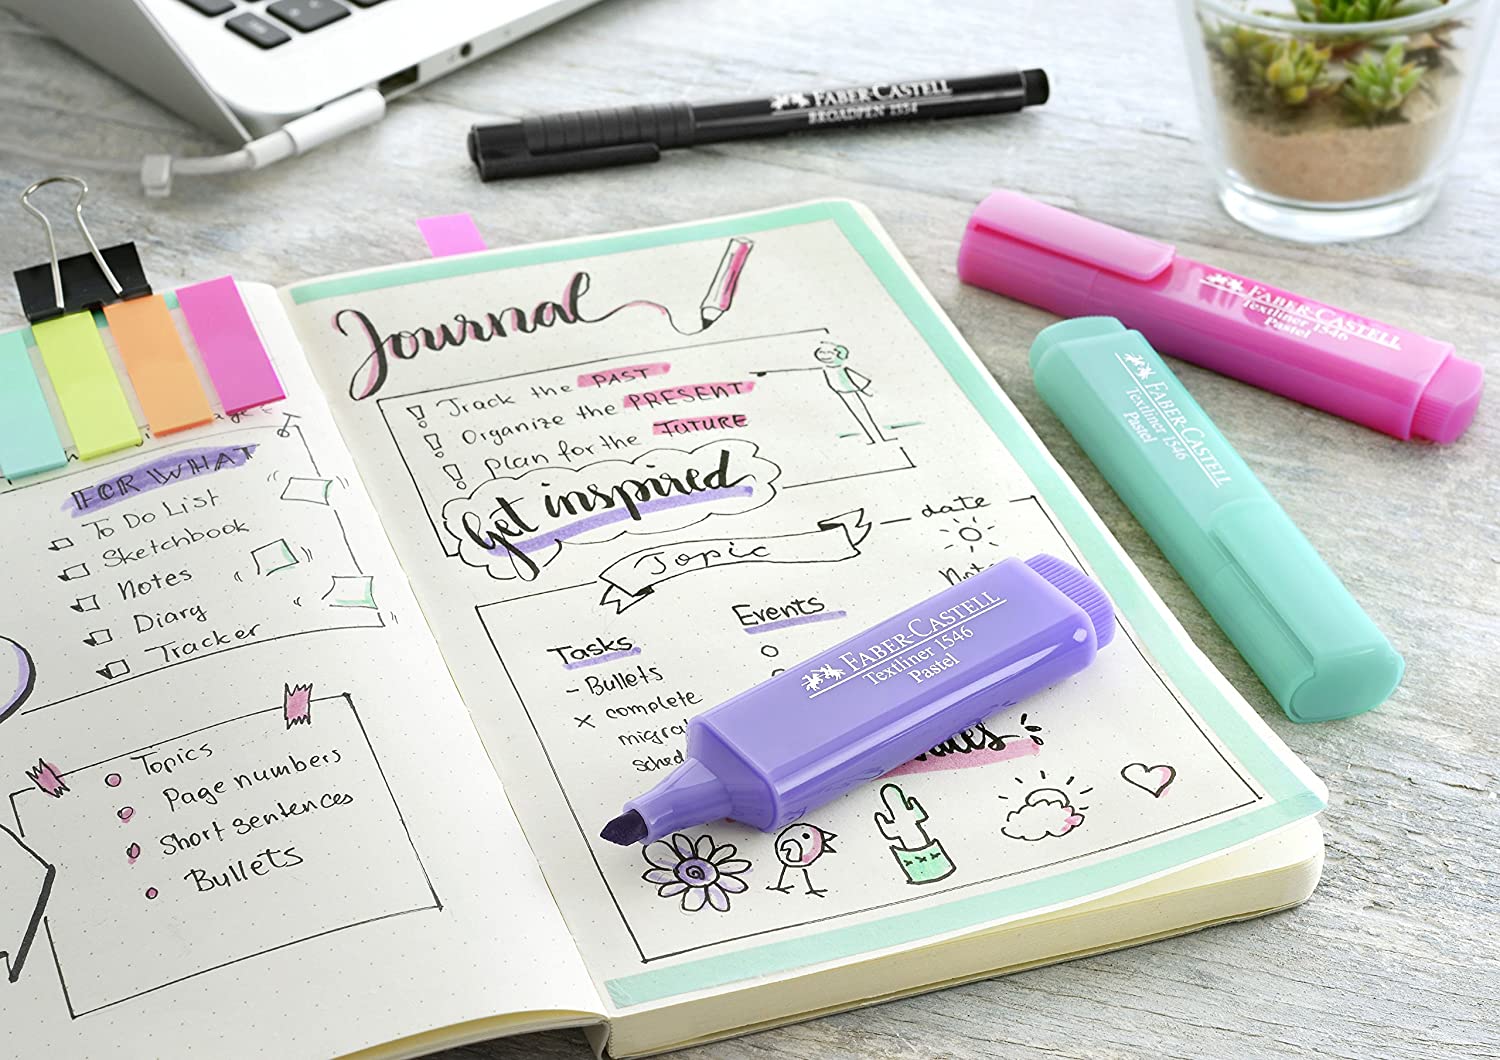 FABER-CASTELL
BROADPEN 1554
FABER-CASTELL
Textliner 1546
Pastel
FABER-CASTELL
Textliner 1546
Pastel
FOR WHAT
To Do List
Sketchbook
Notes
Diary
Tracker
Topics
Page numbers
Short sentences
Bullets
Journal
! Track the PAST
! Organize the PRESENT
! plan for the FUTURE
Get inspired
Topic
date
Tasks
- Bullets
x complete
Events
FABER-CASTELL
Textliner 1546
Pastel